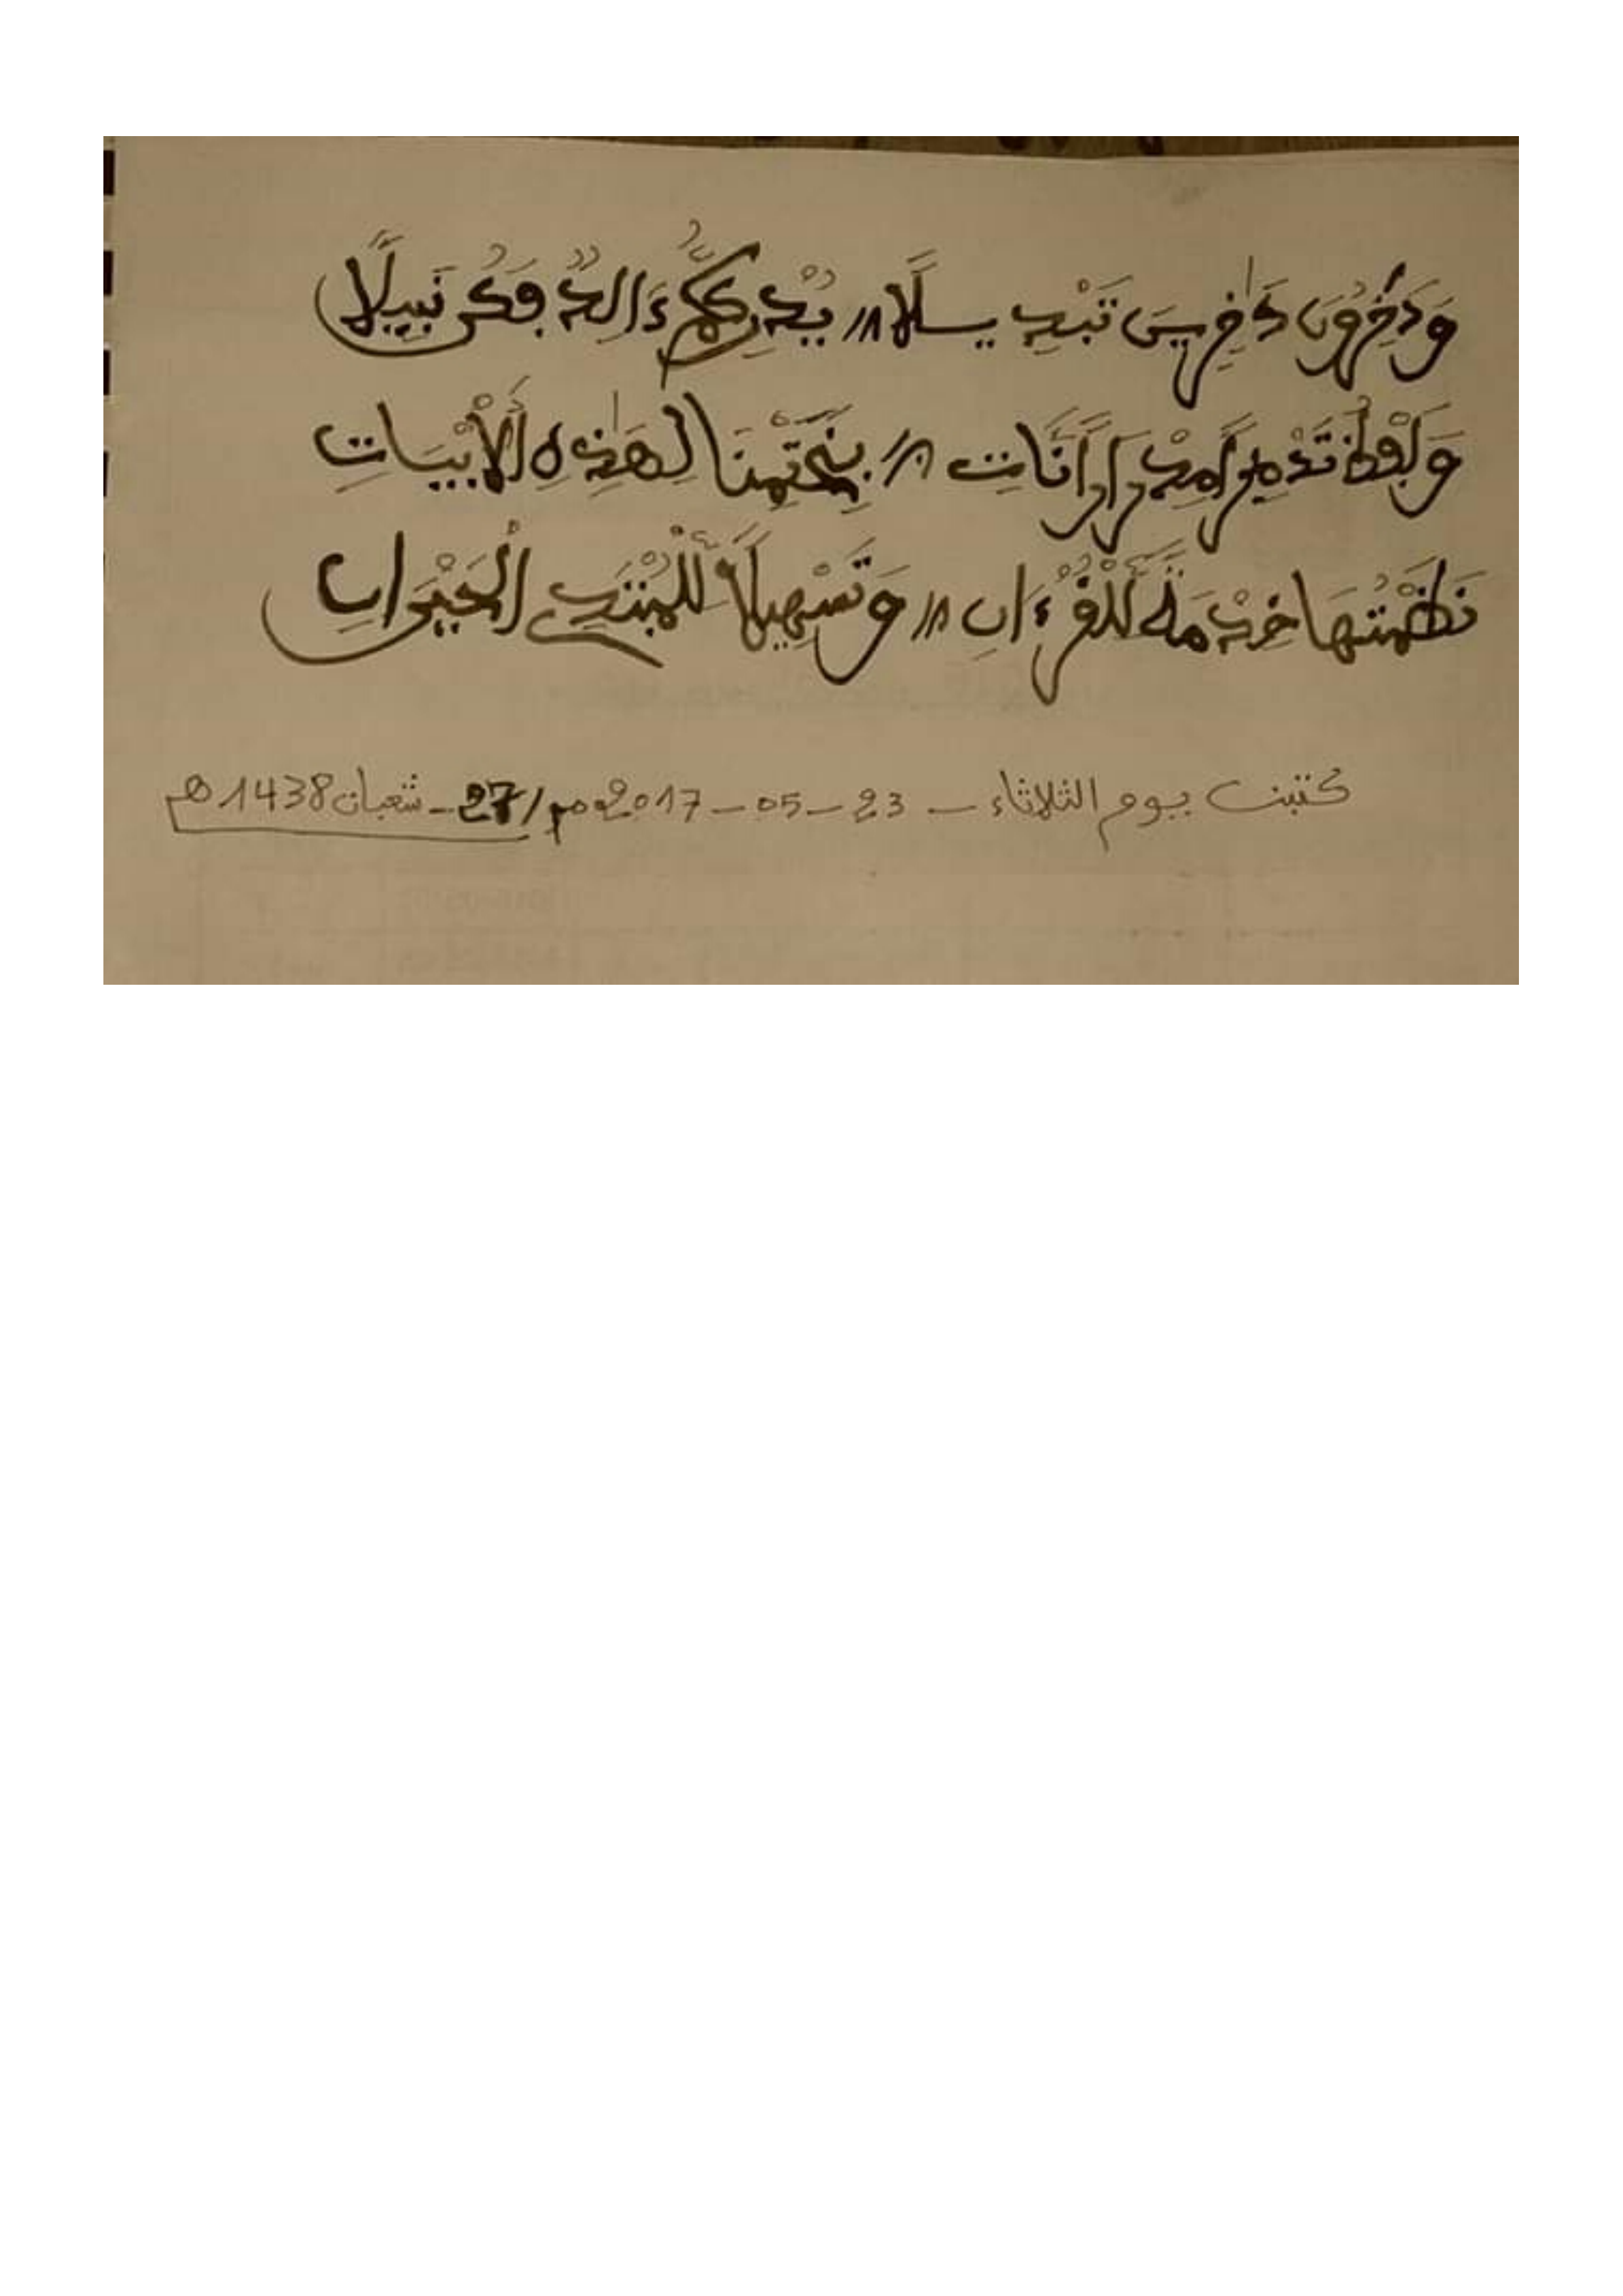 وَدَٰخِرُونَ دَٰخِرِيسَ تَبْدِيسلَا // يُدْرِككُّمُ ءَالِدٌ فَكُن نَبِيلًا
وَلَفْظُ تَدْمِيراً مِدْرَاراً نَاتِ // بِخَتْمِنَا لِهَٰذِهِ الْأَبْيَاتِ
نَظَمْتُهَا خِدْمَةً لِلْقُرْءَانِ // وَتَسْهِيلاً لِلْمُبْتَدِي الْحَيْرَانِ
كتبت يوم الثلاثاء – 23 – 05 – 2017م / 27 – شعبان 1438هـ